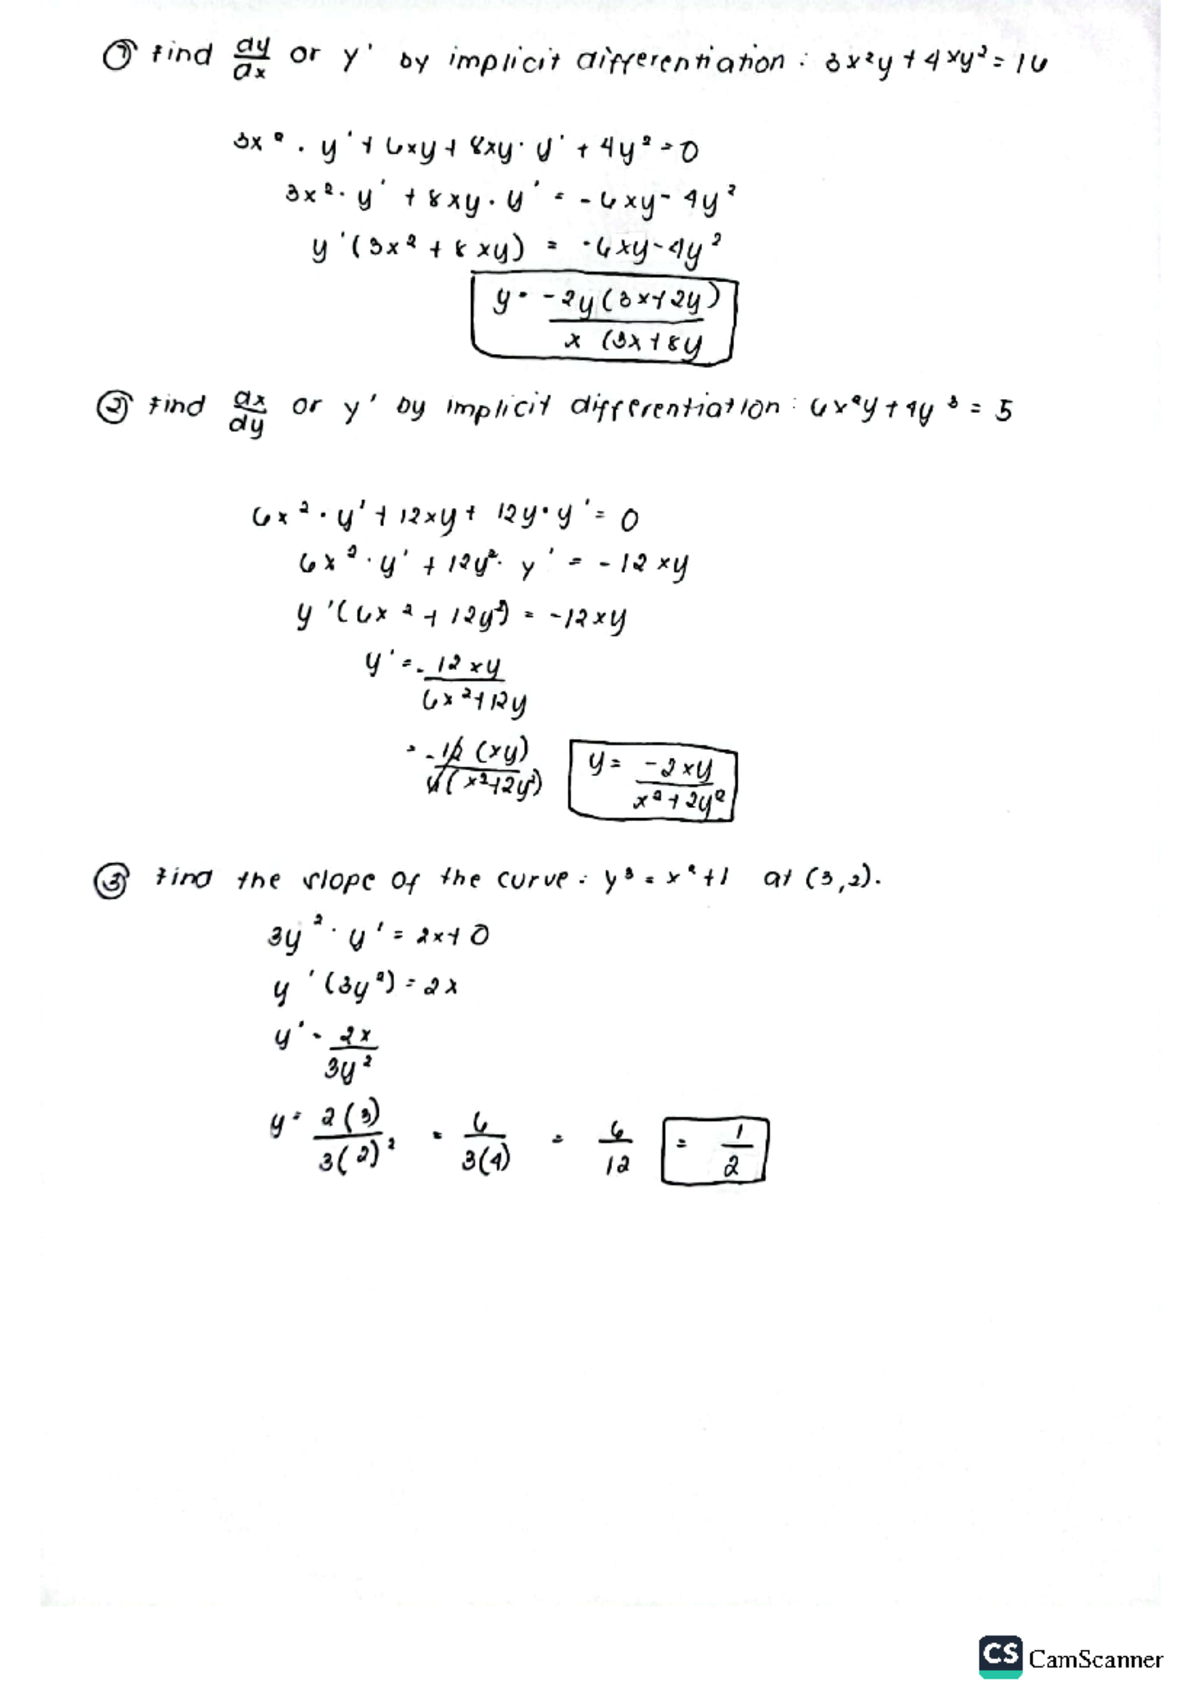 ① Find dy/dx or y' by implicit differentiation : 3x²y + 4xy² = 16
3x² · y' + 6xy + 8xy · y' + 4y² = 0
3x² · y' + 8xy · y' = - 6xy - 4y²
y' (3x² + 8xy) = -6xy - 4y²
y = -2y (3x + 2y) / x (3x + 8y
② Find dx/dy or y' by implicit differentiation : 6x²y + 4y³ = 5
6x² · y' + 12xy + 12y · y' = 0
6x² · y' + 12y² · y' = - 12xy
y' (6x² + 12y²) = -12xy
y' = - 12xy / 6x² + 12y
= - 12 (xy) / 6 (x² + 2y²) y = -2xy / x² + 2y²
③ Find the slope of the curve : y³ = x² + 1 at (3,2).
3y² · y' = 2x + 0
y' (3y²) = 2x
y' = 2x / 3y²
y = 2(3) / 3(2)² = 6 / 3(4) = 6 / 12 = 1 / 2
CS CamScanner